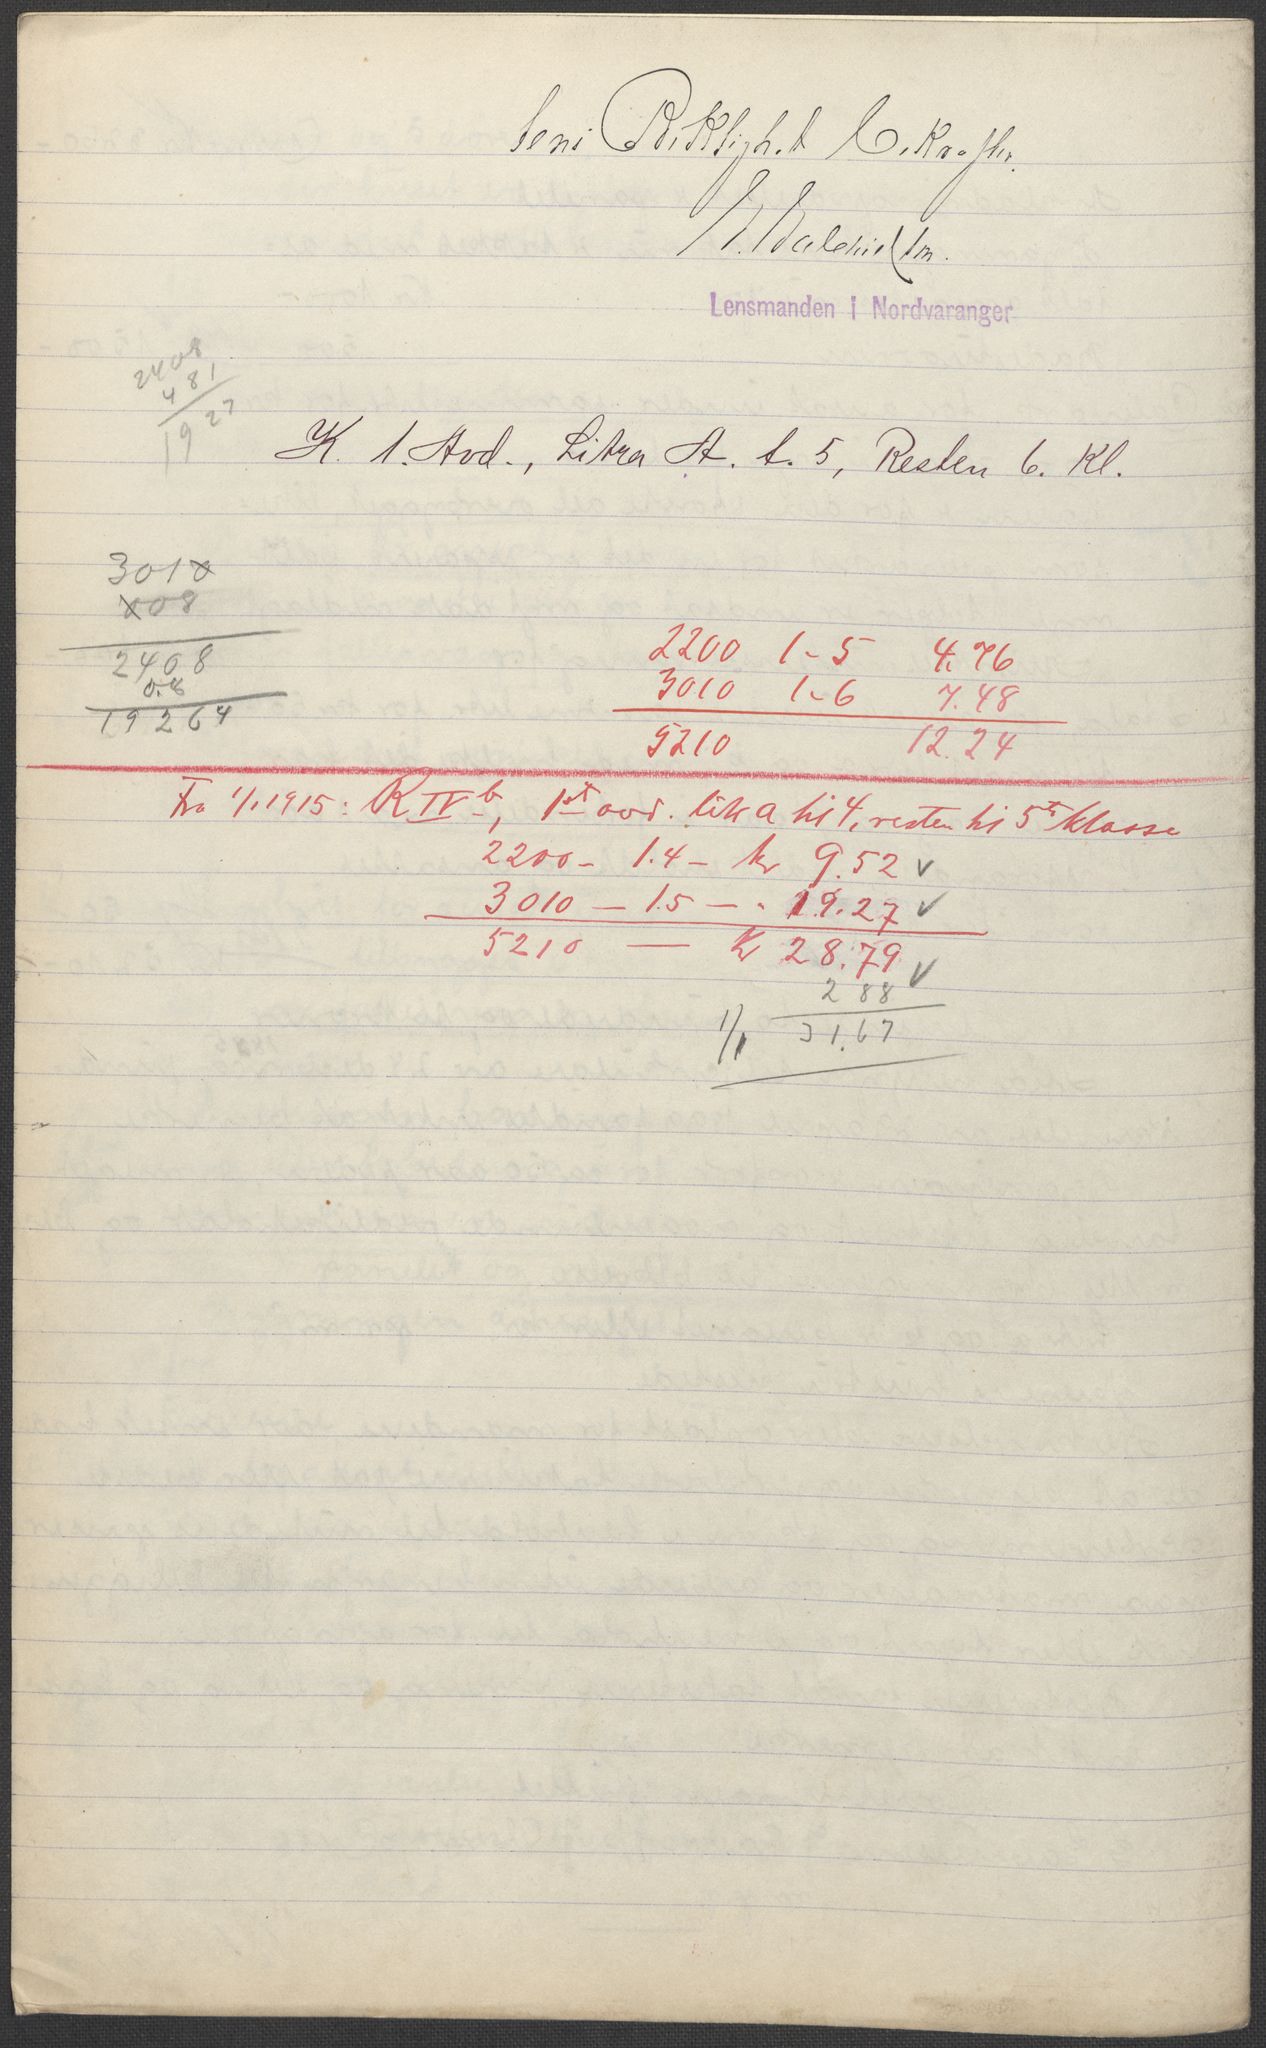 Lensmanden i Nordvaranger
2408
481
1927
K. 1. Avd., Litra A. t. 5, Resten 6. Kl.
3010
008
2408
0.8
19264
2200 1-5 4.76
3010 1-6 7.48
5210 12.24
Fra 1/1 1915: K IV b, 1st avd. litr a til 4, resten til 5te klasse
2200 - 1.4 - kr 9.52 ✓
3010 - 1.5 - " 19.27 ✓
5210 — kr 28.79 ✓
2 88
1/1 31.67